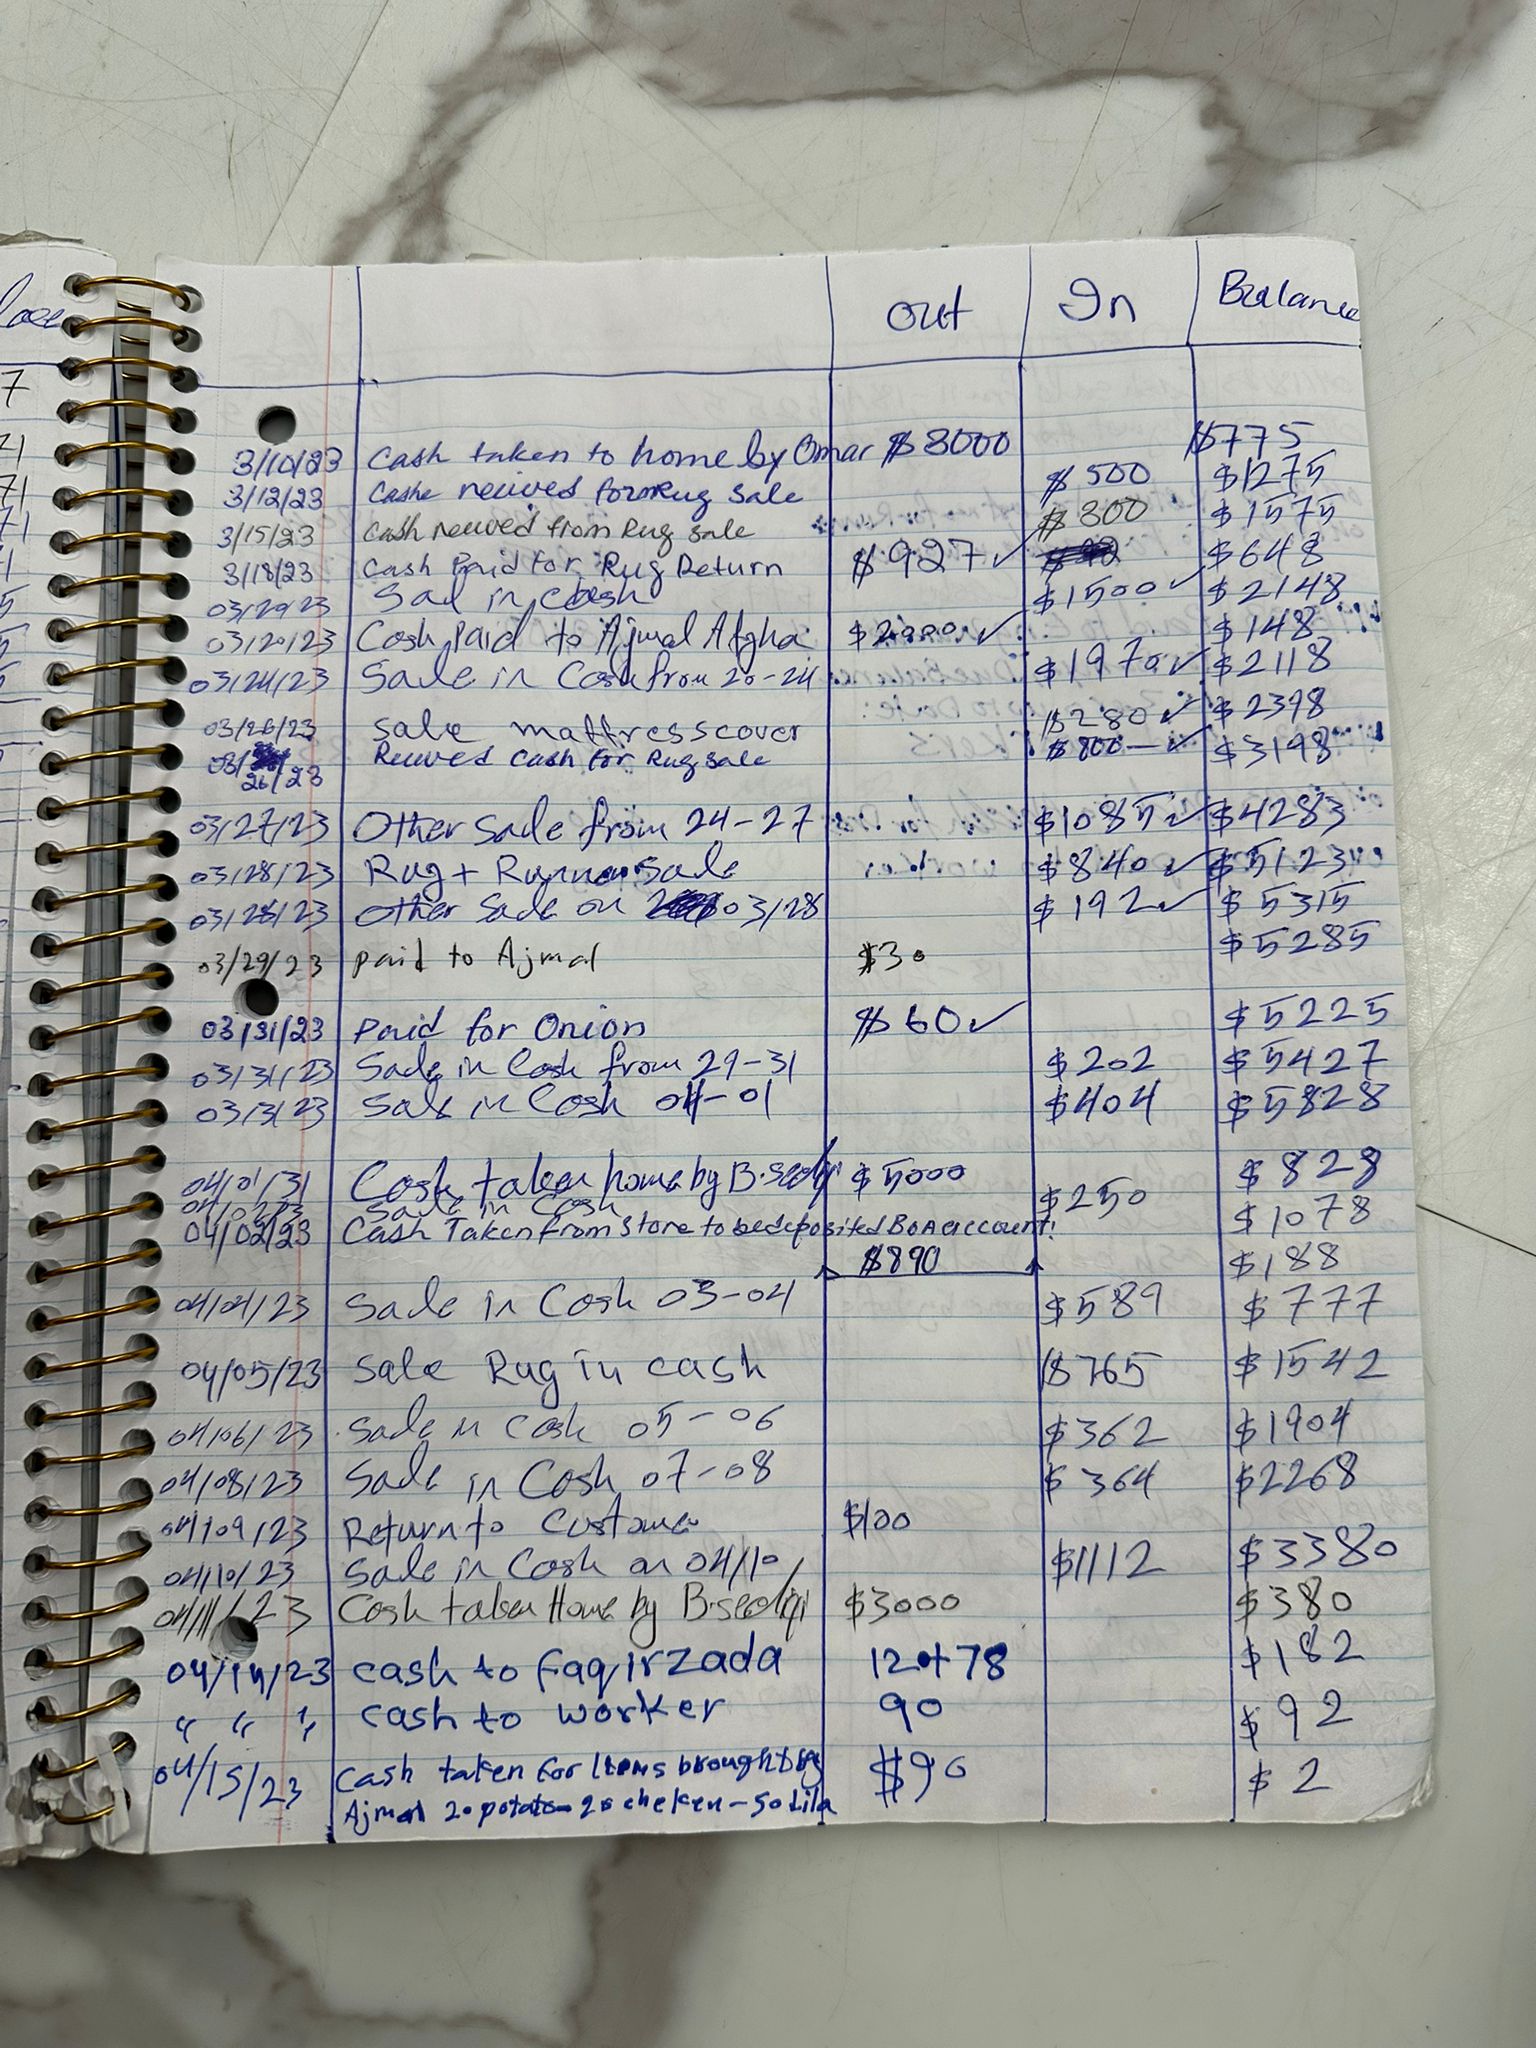 Out In Balance
3/10/23 Cash taken to home by Omar $3000 $775
3/12/23 Cashe reuived formRug Sale $500 $1275
3/15/23 Cash reuved from Rug Sale $300 $1575
3/18/23 Cash Paid for Rug Return $927 ✓ $648
03/20/23 Sal in Cash $1500 ✓ $2148
03/20/23 Cash Paid to Ajmal Afgha $2000 ✓ $148
03/24/23 Sale in Cash from 20-24 $1970 ✓ $2118
03/26/23 Sale mattresscover $280 ✓ $2398
03/26/23 Reuved Cash for Rug Sale $800 — ✓ $3198
03/27/23 Other Sale from 24-27 $1085 ✓ $4283
03/28/23 Rug + Runner Sale $840 ✓ $5123
03/28/23 Other Sale on 03/28 $192 ✓ $5315
03/29/23 paid to Ajmal $30 $5285
03/31/23 Paid for Onion $60 ✓ $5225
03/31/23 Sale in Cash from 29-31 $202 $5427
03/31/23 Sale in Cash 04-01 $404 $5828
04/01/31 Cash taken home by B. $5000 $828
04/02/23 Sale in Cash $250 $1078
04/02/23 Cash Taken from Store to be deposited BoA account!
$890 $188
04/04/23 Sale in Cash 03-04 $589 $777
04/05/23 Sale Rug in cash $765 $1542
04/06/23 Sale in Cash 05-06 $362 $1904
04/08/23 Sale in Cash 07-08 $364 $2268
04/09/23 Return to Customer $100
04/10/23 Sale in Cash on 04/10 $1112 $3380
04/11/23 Cash taken Home by B. $3000 $380
04/14/23 cash to Faqirzada 120+78 $182
" " " cash to worker 90 $92
04/15/23 Cash taken for Items brought by $90 $2
Ajmal 20 potato - 20 cheken - 50 Lila